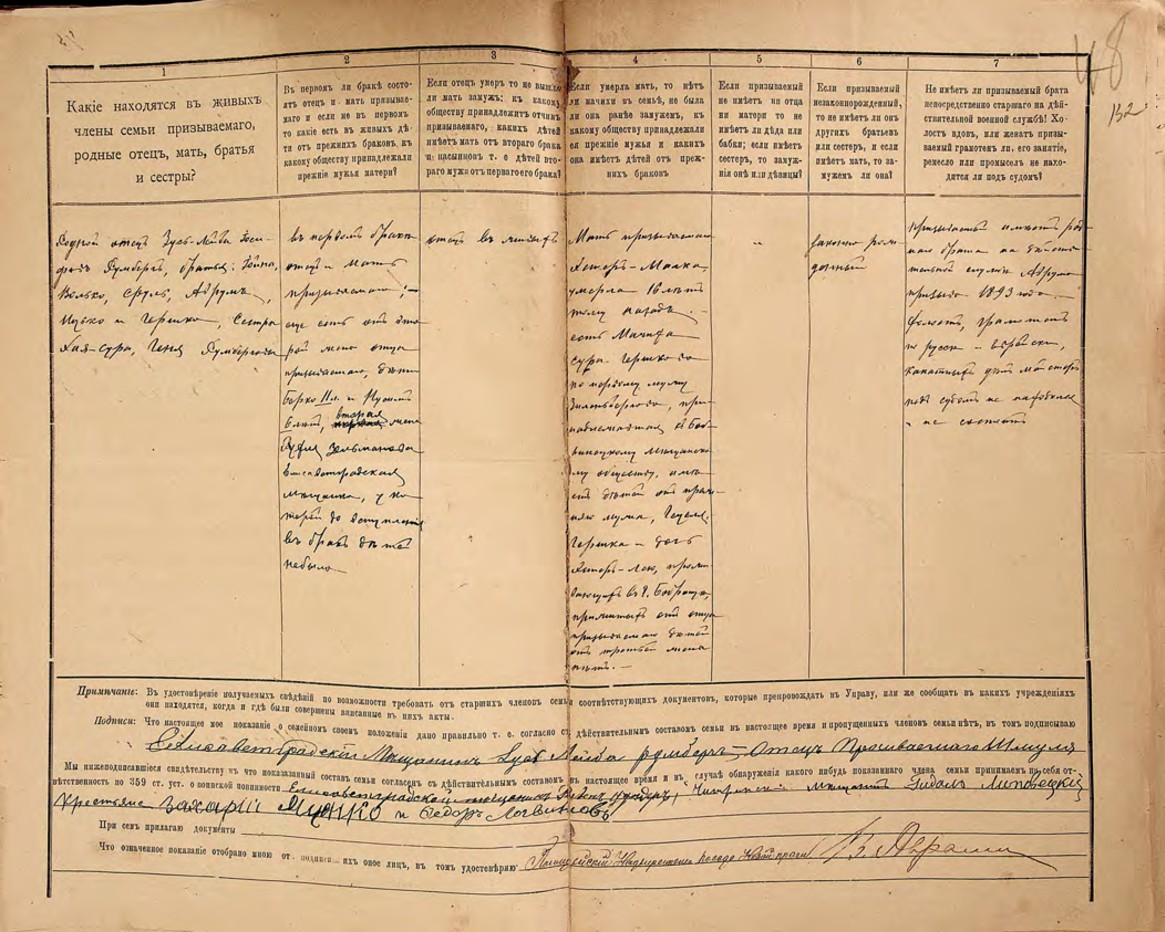 48
132
1
Какіе находятся въ живыхъ
члены семьи призываемаго,
родные отецъ, мать, братья
и сестры?
2
Въ первомъ ли бракѣ состо-
ятъ отецъ и мать призывае-
маго и если не въ первомъ
то какіе есть въ живыхъ дѣ-
ти отъ прежнихъ браковъ къ
какому обществу принадлежали
прежніе мужья матери?
3
Если отецъ умеръ то не вышла
ли мать замужъ; къ какому
обществу принадлежитъ отчимъ
призываемаго, какихъ дѣтей
имѣетъ мать отъ втораго брака
и пасынковъ т. е. дѣтей вто-
раго мужа отъ перваго его брака?
4
Если умерла мать, то нѣтъ
ли мачихи въ семьѣ, не была
ли она ранѣе замужемъ, къ
какому обществу принадлежали
ея прежніе мужья и какихъ
она имѣетъ дѣтей отъ преж-
нихъ браковъ
5
Если призываемый
не имѣетъ ни отца
ни матери то не
имѣетъ ли дѣда или
бабки; если имѣетъ
сестеръ, то замуж-
нія онѣ или дѣвицы?
6
Если призываемый
незаконнорожденный,
то не имѣетъ ли онъ
другихъ братьевъ
или сестеръ, и если
имѣетъ мать, то за-
мужемъ ли она?
7
Не имѣетъ ли призываемый брата
непосредственно старшаго на дѣй-
ствительной военной службѣ! Хо-
лостъ вдовъ, или женатъ призы-
ваемый грамотенъ ли, его занятіе,
ремесло или промыселъ не нахо-
дится ли подъ судомъ?
Родной отецъ Зусь-Лейба
Румберъ, братья:
Волько, Сруль,
и Гершко, Сестра
Хая-Сура, Геня
въ первомъ бракѣ
отецъ и мать
призываемаго;
еще есть отъ вто-
рой жены отца
призываемаго, дѣти
Берко 11 л. и
6 лѣтъ, вторая жена
Зельманова
Елисаветградская
мѣщанка, у ко-
торой до вступленія
въ бракъ дѣтей
небыло
отецъ въ живыхъ
Мать призываемаго
Малка
умерла 16 лѣтъ
тому назадъ. —
есть Мачиха
Сура Гершкова
по первому мужу
при-
надлежавшая къ Боб-
ринецкому мѣщанско-
му обществу, имѣ-
етъ дѣтей отъ преж-
няго мужа,
Гершка и дочь
прожи-
вающихъ въ г. Бобринцѣ,
прижитыхъ отъ отца
призываемаго дѣтей
отъ третьей жены
нѣтъ. —
„
законно рож-
денный
Призываемый имѣетъ род-
наго брата на дѣйстви-
тельной службѣ
призыва 1893 года. —
Холостъ, грамотенъ
по русски и еврейски,
канатныхъ дѣлъ мастеръ
подъ судомъ не находился
и не состоитъ
Примѣчаніе: Въ удостовѣреніе получаемыхъ свѣдѣній по возможности требовать отъ старшихъ членовъ семьи соотвѣтствующихъ документовъ, которые препровождать въ Управу, или же сообщать въ какихъ учрежденіяхъ
они находятся, когда и гдѣ были совершены вписанные въ нихъ акты.
Подписи: Что настоящее мое показаніе о семейномъ своемъ положеніи дано правильно т. е. согласно съ дѣйствительнымъ составомъ семьи въ настоящее время и пропущенныхъ членовъ семьи нѣтъ, въ томъ подписываю
Елисаветградскій Мѣщанинъ Зусь Лейба Румберъ — Отецъ Призываемаго Шмуля
Мы нижеподписавшіеся свидѣтельству въ что показазанный составъ семьи согласенъ съ дѣйствительнымъ составомъ въ настоящее время и въ случаѣ обнаруженія какого нибудь показаннаго члена семьи принимаемъ на себя от-
вѣтственность по 359 ст. уст. о воинской повинности Елисаветградскій мѣщанинъ мѣщанинъ Гидаль Липовецкій
крестьяне Захарій Мицнко и Федоръ Логвиновъ
При семъ прилагаю документы
Что означенное показаніе отобрано мною отъ подписавшихъ оное лицъ, въ томъ удостовѣряю Полицейскій Надзиратель посада Новой праги